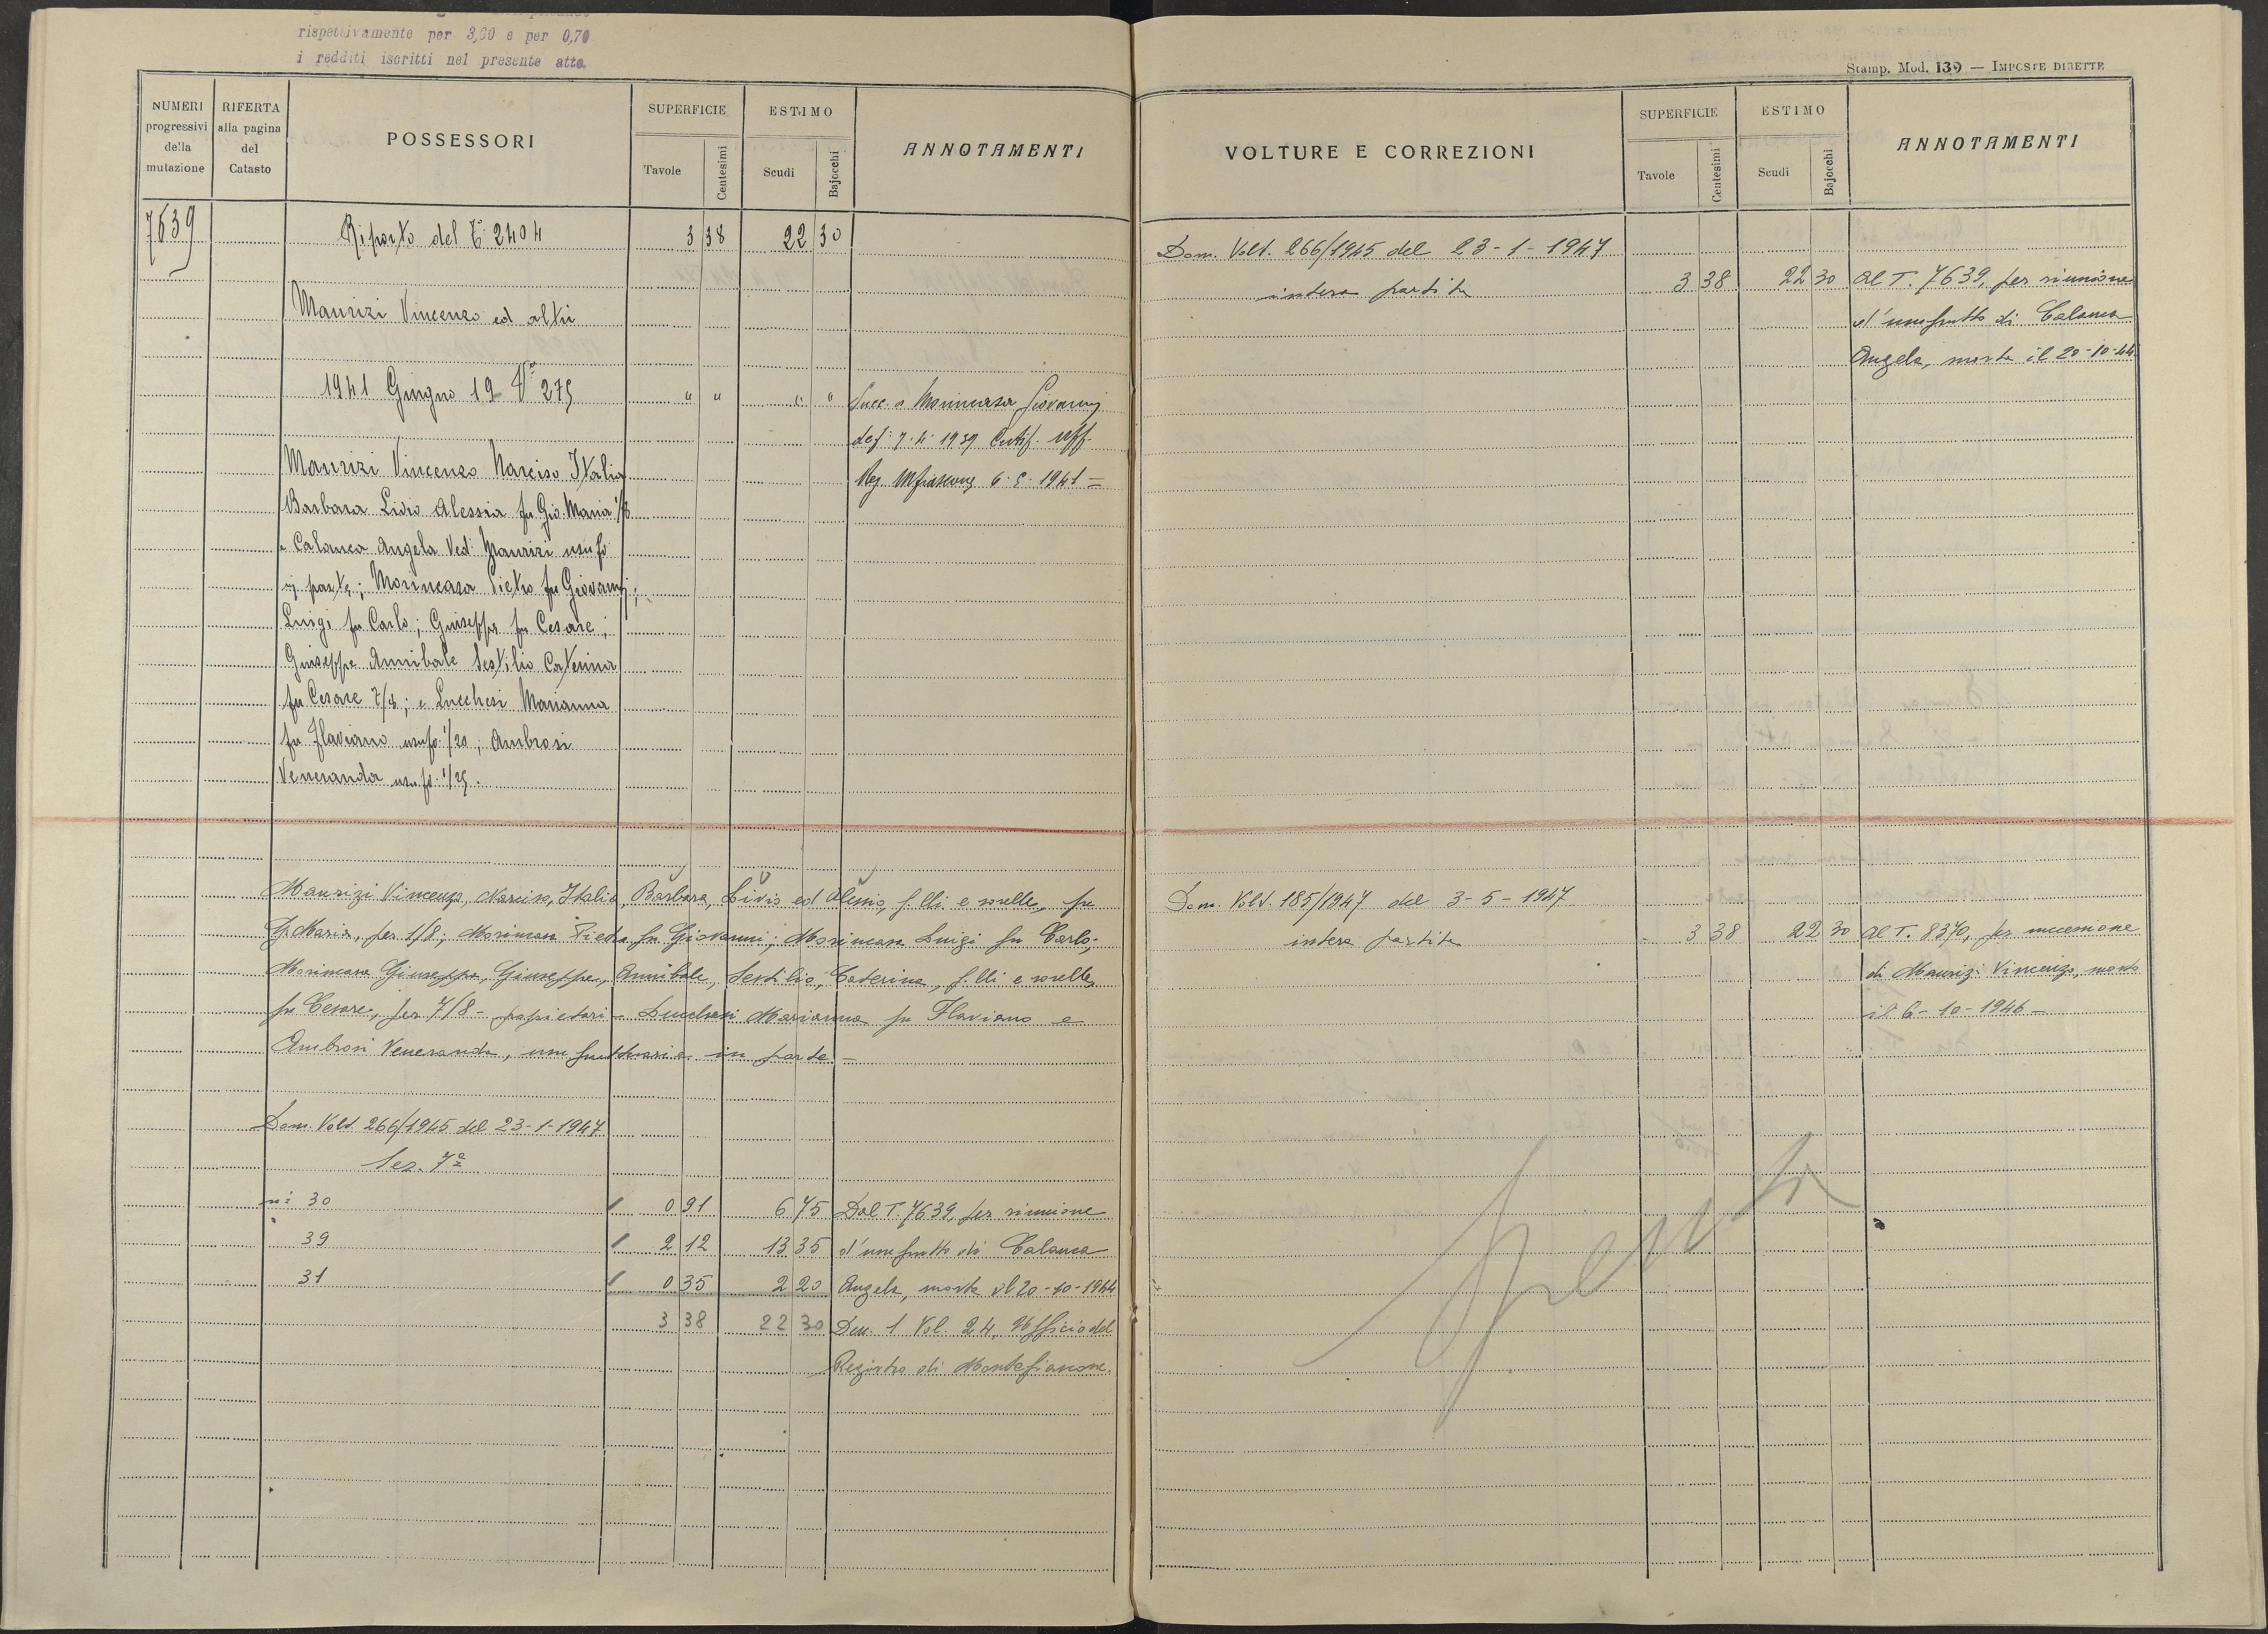 rispettivamente per 3,00 e per 0,70
i redditi iscritti nel presente atto.
NUMERI progressivi della mutazione
RIFERTA alla pagina del Catasto
POSSESSORI
SUPERFICIE
Tavole
Centesimi
ESTIMO
Scudi
Bajocchi
ANNOTAMENTI
7639
Riporto del T. 2404 3 38 22 30
Maurizi Vincenzo ed altri
1941 Giugno 19 V° 275 " " " " Succ. a Morincasa Giovanni
def. 7.4.1939 Certif. uff.
Reg. Mfiascone 6.5.1941 =
Maurizi Vincenzo Narciso Italia
Barbara Livio Alessia fu Gio. Maria 1/8
e Calanca Angela Ved. Maurizi usufr.
in parte; Morincasa Pietro fu Giovanni;
Luigi fu Carlo; Giuseppa fu Cesare;
Giuseppe Annibale Sestilio Caterina
fu Cesare 7/8; e Lucchesi Marianna
fu Flaviano usufr. 1/20; Ambrosi
Veneranda usufr. 1/25.
Maurizi Vincenzo, Narciso, Italia, Barbara, Livio ed Alessio, f.lli e sorelle, fu
G. Maria, per 1/8; Morincasa Pietro fu Giovanni; Morincasa Luigi fu Carlo;
Morincasa Giuseppa, Giuseppe, Annibale, Sestilio, Caterina, f.lli e sorelle,
fu Cesare, per 7/8 - proprietari - Lucchesi Marianna fu Flaviano e
Ambrosi Veneranda, usufruttuarie in parte -
Dom. Volt. 266/1945 del 23-1-1947
Sez. 7ª
n: 30 0 91 6 75 Dal T. 7639, per riunione
39 2 12 13 35 d'usufrutto di Calanca
31 0 35 2 20 Angela, morta il 20-10-1944
3 38 22 30 Den. 1 Vol. 24, Ufficio del
Registro di Montefiascone.
Stamp. Mod. 139 — IMPOSTE DIRETTE
VOLTURE E CORREZIONI
SUPERFICIE
Tavole
Centesimi
ESTIMO
Scudi
Bajocchi
ANNOTAMENTI
Dom. Volt. 266/1945 del 23-1-1947
intera partita 3 38 22 30 Al T. 7639, per riunione
d'usufrutto di Calanca
Angela, morta il 20-10-44
Dom. Volt. 185/1947 del 3-5-1947
intera partita 3 38 22 30 Al T. 8370, per successione
di Maurizi Vincenzo, morto
il 6-10-1946 -